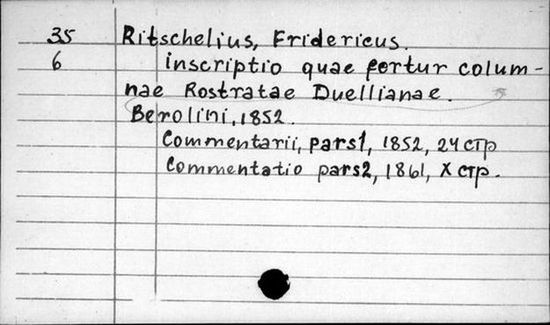 35 Ritschelius, Fridericus.
6 inscriptio quae fertur colum-
nae Rostratae Duellianae.
Berolini, 1852.
Commentarii, pars1, 1852, 24 стр
Commentatio pars2, 1861, X стр.